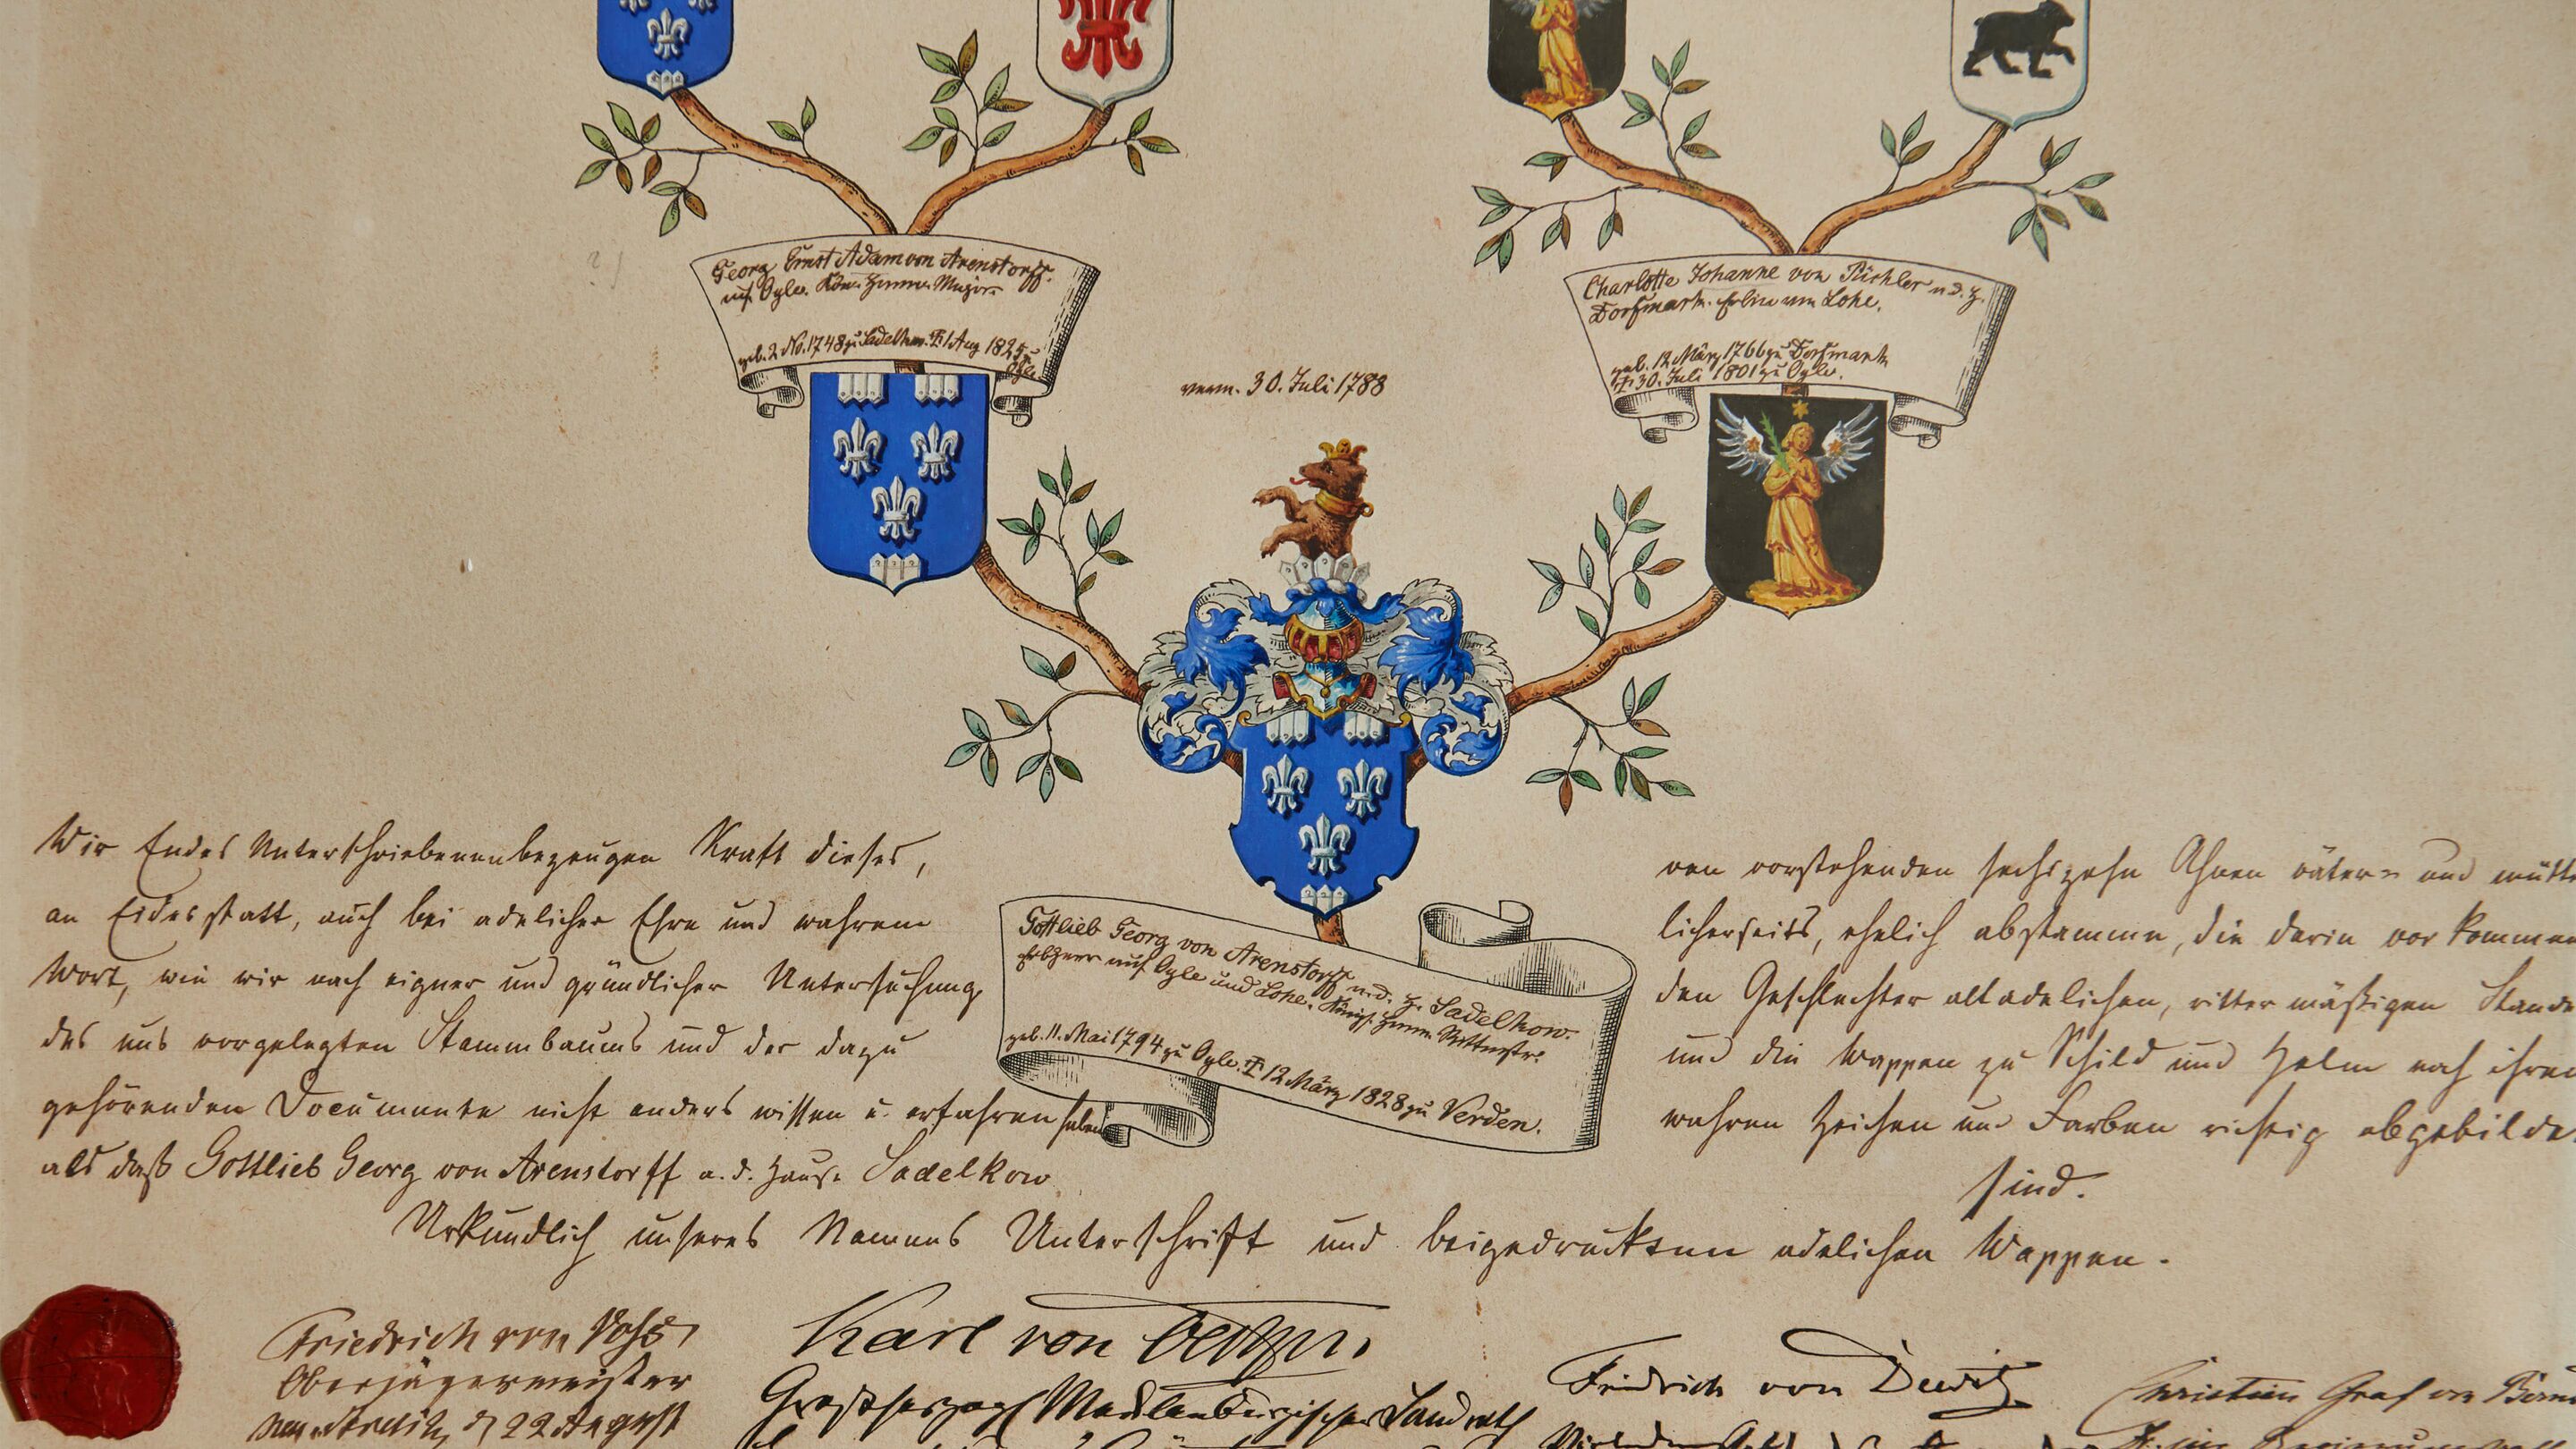 Georg Ernst Adam von Arenstorff.
auf Oyle. Kön. Hannov. Major.
geb. 2 No. 1748 zu Sadelkow. † 1 Aug 1825 zu
Oyle.
Charlotte Johanne von Püchler a. d. H.
Dorfmark. Erbin von Lohe.
geb. 12 März 1766 zu Dorfmark
† 30. Juli 1801 zu Oyle.
verm. 30. Juli 1788
Gottlieb Georg von Arenstorff a. d. H. Sadelkow.
Erbherr auf Oyle und Lohe. Königl. Hann. Rittmstr.
geb. 11. Mai 1794 zu Oyle. † 12 März 1828 zu Verden.
Wir Endes Unterschriebenen bezeugen Kraft dieses,
an Eidesstatt, auch bei adelicher Ehre und wahrem
Wort, wie wir nach eigner und gründlicher Untersuchung
des uns vorgelegten Stammbaums und der dazu
gehörenden Documente nicht anders wissen u. erfahren haben
als daß Gottlieb Georg von Arenstorff a. d. Hause Sadelkow
von vorstehenden sechszehn Ahnen väter= und mütte
licherseits, ehelich abstamme, die darin vorkommen
den Geschlechter altadelichen, rittermäßigen Stande
und die Wappen zu Schild und Helm nach ihren
wahren Zeichen und Farben richtig abgebildet
sind.
Urkundlich unseres Namens Unterschrift und beigedruckten adelichen Wappen.
Friedrich von Voß
Oberjägermeister
Neustrelitz, d 22 August
Karl von Oertzen.
Großherzogl Mecklenburgischer Landrath
Friedrich von Dewitz
Christian Graf von Bern